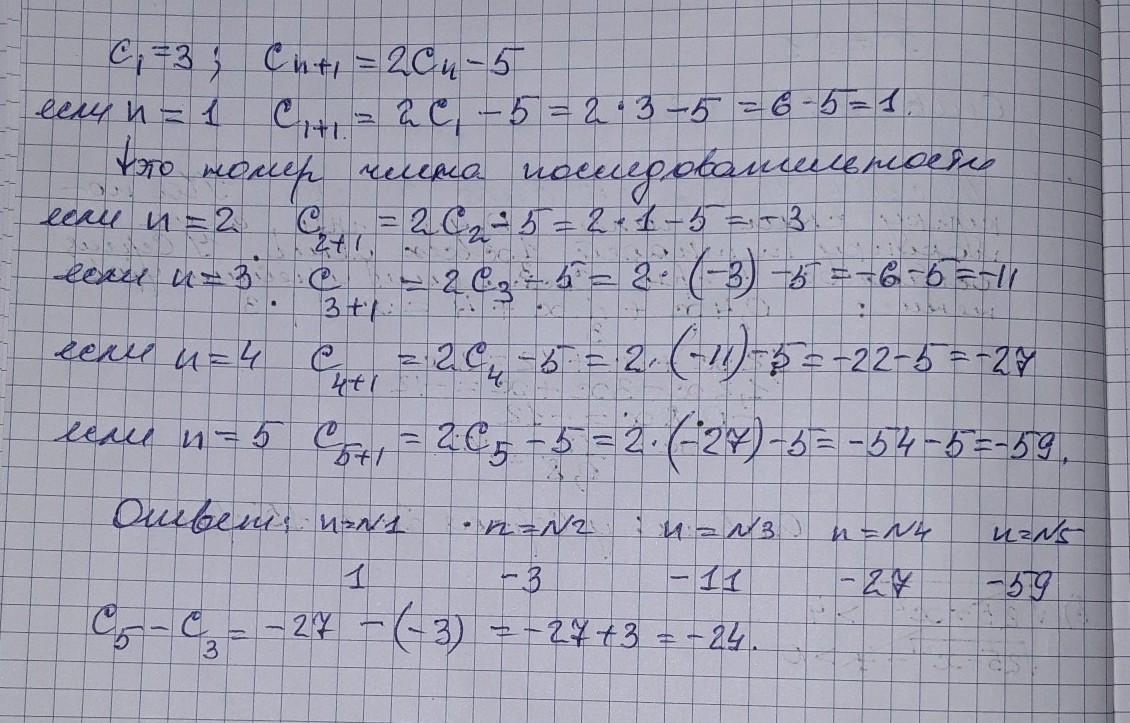 C₁ = 3; Cₙ₊₁ = 2Cₙ - 5
если n = 1 C₁₊₁ = 2C₁ - 5 = 2·3 - 5 = 6 - 5 = 1.
это номер числа последовательности
если n = 2 C₂₊₁ = 2C₂ - 5 = 2·1 - 5 = -3
если n = 3 C₃₊₁ = 2C₃ - 5 = 2·(-3) - 5 = -6 - 5 = -11
если n = 4 C₄₊₁ = 2C₄ - 5 = 2·(-11) - 5 = -22 - 5 = -27
если n = 5 C₅₊₁ = 2C₅ - 5 = 2·(-27) - 5 = -54 - 5 = -59.
Ответ: n=N1 n=N2 n=N3 n=N4 n=N5
1 -3 -11 -27 -59
C₅ - C₃ = -27 - (-3) = -27 + 3 = -24.